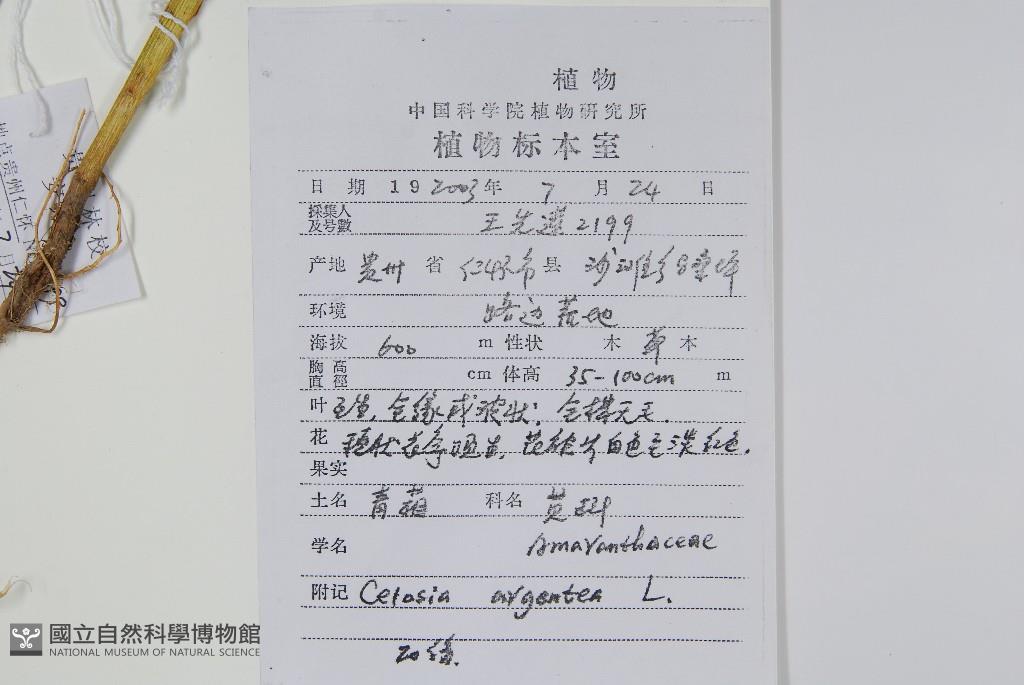 植物
中国科学院植物研究所
植物标本室
日期 19 2003年 7 月 24 日
採集人及号數 王先道 2199
产地 贵州 省 仁怀市 县 沙滩
环境 路边荒地
海拔 600 m 性状 木 草 本
胸高直徑 cm 体高 35-100cm m
叶 互生, 全缘或波状; 全株无毛.
花 穗状花序 , 花被片白色至淡红色.
果实
土名 青葙 科名 苋科
学名 Amaranthaceae
附记 Celosia argentea L.
20份.
贵州仁怀
林校
7月24
國立自然科學博物館
NATIONAL MUSEUM OF NATURAL SCIENCE